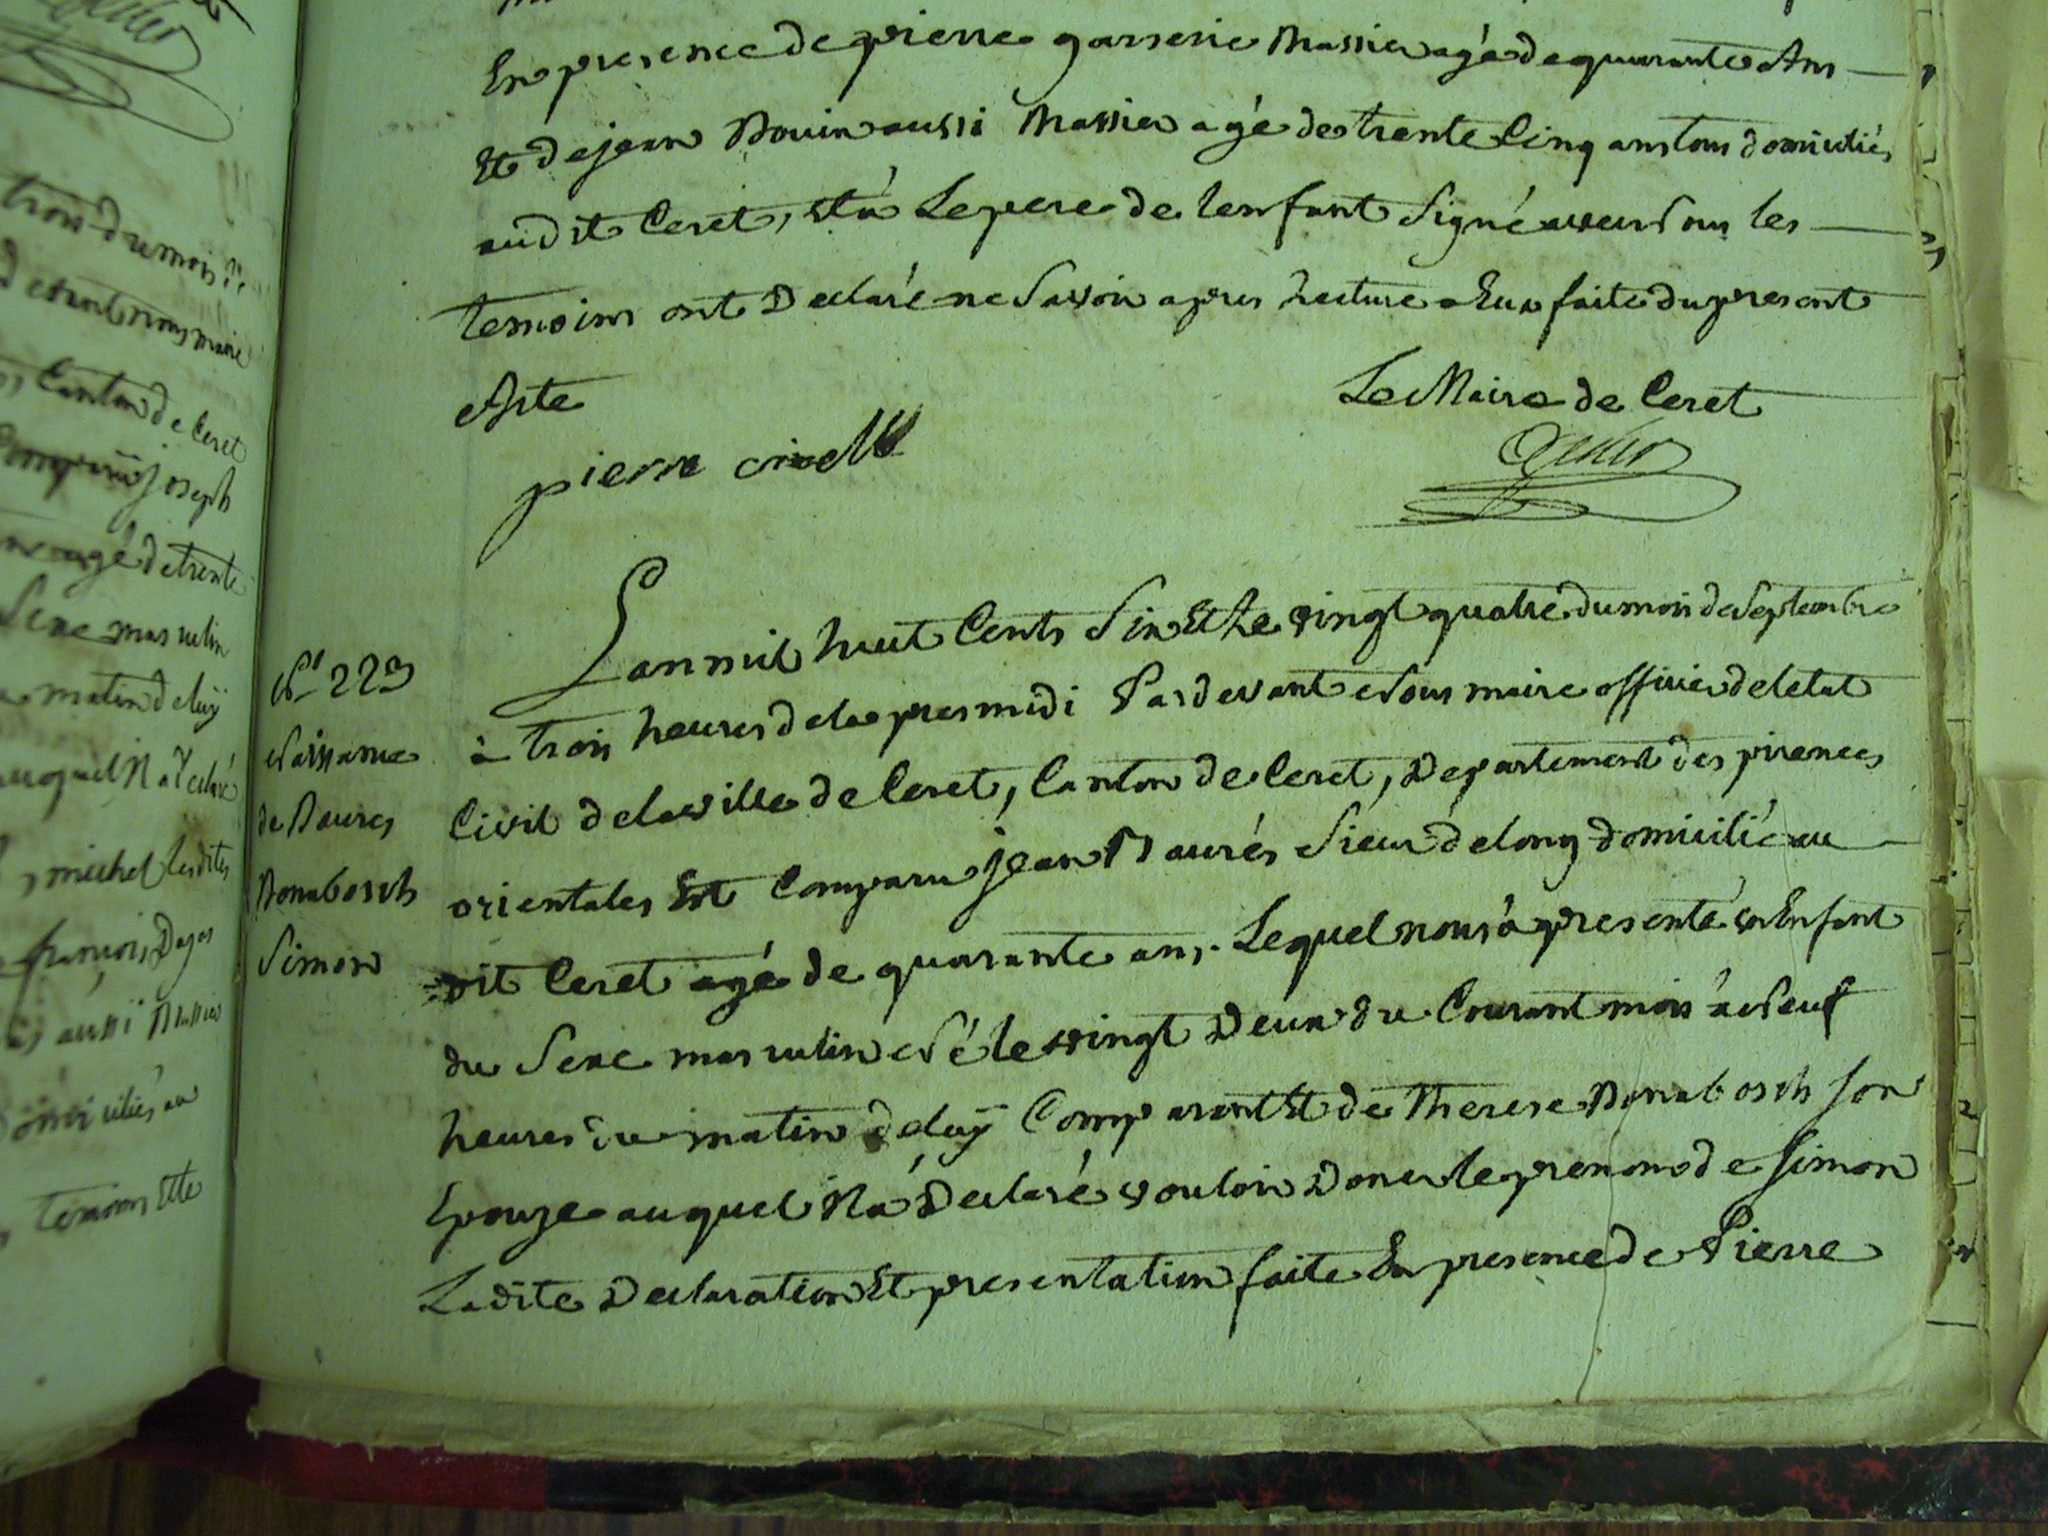 trois du mois de
devant nous maire
Canton de Ceret
Comparu joseph
agé de trente
Sexe masculin
matin de luÿ
auquel Il a declaré
michel lesdites
françois Dages
aussi Massier
domiciliés au
temoins Et le
En presence de pierre garserie Massier agé de quarante Ans
Et de jean Bouix aussi Massier agé de trente Cinq ans tous domiciliés
audit Ceret, Et a Le pere de lenfant Signé avec Nous les
temoins ont Declaré ne Savoir apres Lecture a Eux faite du present
Acte
Le Maire de Ceret
pierre
N.º 223
Naissance
de Baures
Bonabosch
Simon
Lan mil huit Cents Six Et Le vingt quatre du mois de Septembre
à trois heures de lapres midi Pardevant Nous maire officier de letat
Civil de la ville de Ceret, Canton de Ceret, Departement des pirenees
orientales Est Comparu jean Baurés Sieur de long domicilié au
dit Ceret agé de quarante ans. Lequel nous à presenté un Enfant
du Sexe masculin Né le vingt Deux du Courant mois à Neuf
heures du matin de luÿ Comparant Et de Therese Bonabosch son
Epouze auquel Il a Declaré vouloir Doner le prenom de Simon
Ladite Declaration Et presentation faite En presence de Pierre